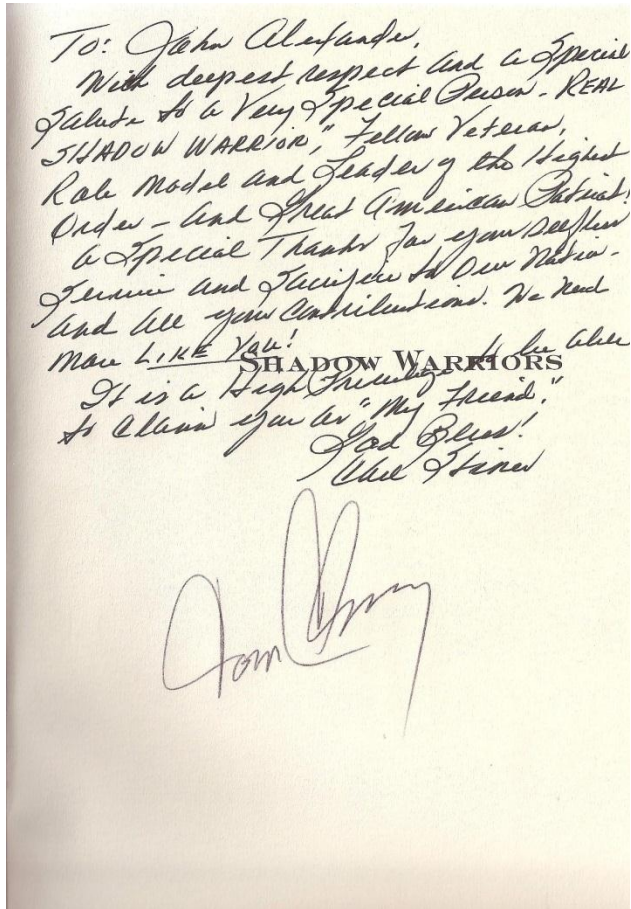 To: John Alexander,
With deepest respect and a Special
Salute to a Very Special Person - REAL
SHADOW WARRIOR," Fellow Veteran,
Role Model and Leader of the Highest
Order - and Great American Patriot!
A Special Thanks for your Selfless
Service and Sacrifice to Our Nation -
and all your Contributions. We Need
More LIKE You!
SHADOW WARRIORS
It is a High Privilege to be able
to Claim you as "My Friend."
God Bless!
Carl Stiner
Tom Clancy